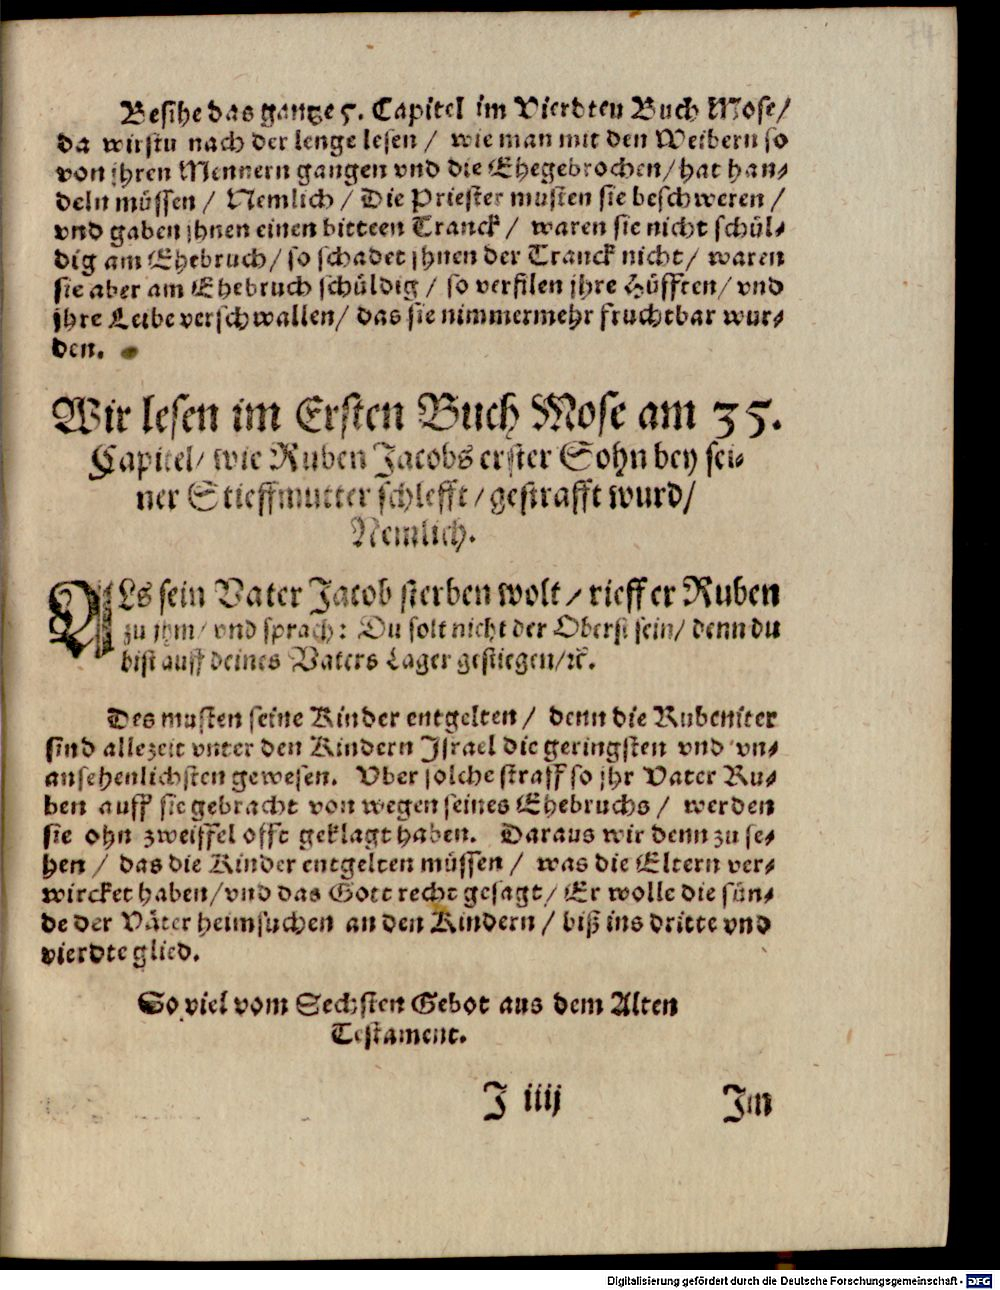 74
Besihe das gantze 5. Capitel im Vierdten Buch Mose/
da wirstu nach der lenge lesen / wie man mit den Weibern so
von jhren Mennern gangen vnd die Ehegebrochen/ hat han⸗
deln müssen / Nemlich / Die Priester musten sie beschweren /
vnd gaben jhnen einen bitteen Tranck / waren sie nicht schül⸗
dig am Ehebruch/ so schadet jhnen der Tranck nicht/ waren
sie aber am Ehebruch schüldig / so verfilen jhre Hüfften/ vnd
jhre Leibe verschwallen/ das sie nimmermehr fruchtbar wur⸗
den.
Wir lesen im Ersten Buch Mose am 35.
Capitel/ wie Ruben Jacobs erster Sohn bey sei⸗
ner Stieffmutter schlefft/ gestrafft wurd/
Nemlich.
ALs sein Vater Jacob sterben wolt / rieff er Ruben
zu jhm/ vnd sprach: Du solt nicht der Oberst sein/ denn du
bist auff deines Vaters Lager gestiegen/ ꝛc.
Des musten seine Kinder entgelten / denn die Rubeniter
sind allezeit vnter den Kindern Jsrael die geringsten vnd vn⸗
ansehenlichsten gewesen. Vber solche straff so jhr Vater Ru⸗
ben auff sie gebracht von wegen seines Ehebruchs / werden
sie ohn zweiffel offt geklagt haben. Daraus wir denn zu se⸗
hen / das die Kinder entgelten müssen / was die Eltern ver⸗
wircket haben/ vnd das Gott recht gesagt/ Er wolle die sün⸗
de der Väter heimsuchen an den Kindern / biß ins dritte vnd
vierdte glied.
So viel vom Sechsten Gebot aus dem Alten
Testament.
J iiij Im
Digitalisierung gefördert durch die Deutsche Forschungsgemeinschaft - DFG